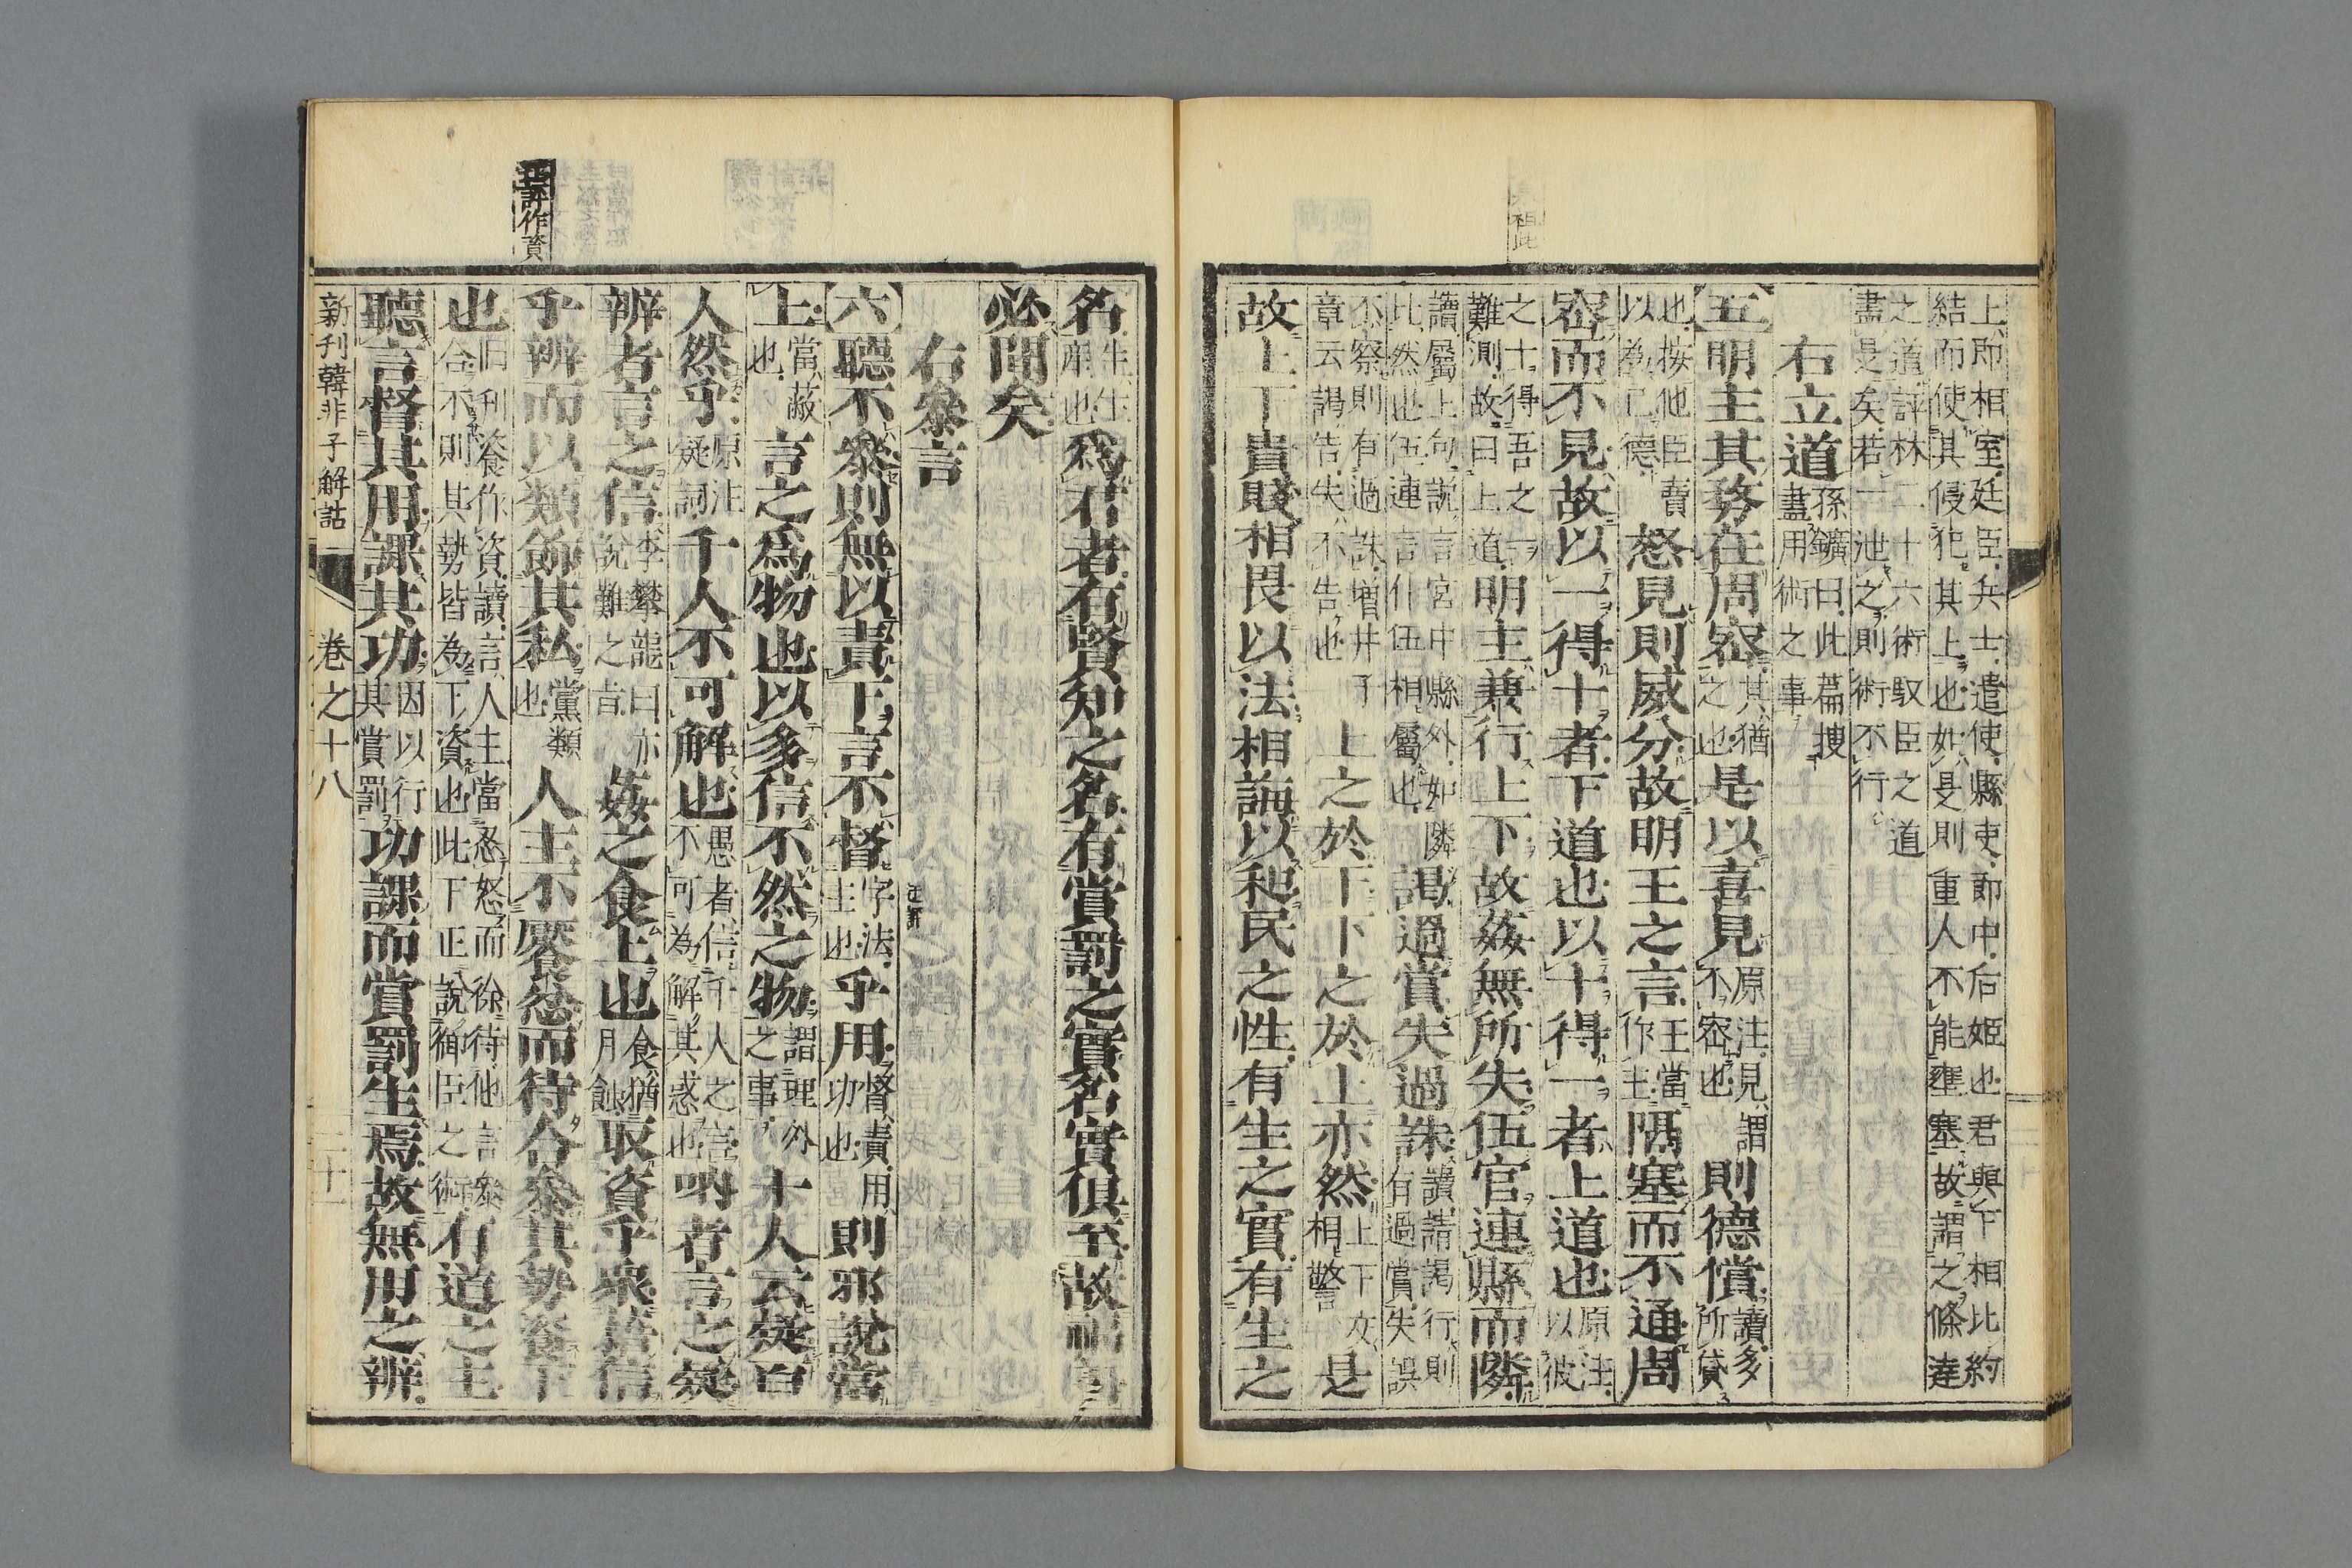 上、即相室、廷臣、兵士、遣使、縣吏、郎中、后姫也、君與下相比約
結而使其侵犯其上也、如是則重人不能壅塞、故謂之條達
之道、評林二十六術馭臣之道
盡是矣、若一池之則術不行、
右立道 孫鑛曰、此篇捜
盡用術之事
五 明主其務在周密 其、猶
之也 是以喜見 原注、見、謂
不密也 則德償 讀、多
所貸
也、按他臣賣
以為己德、 怒見則威分故明王之言 王當
作主 隔塞而不通周
密而不見故以一得十者下道也以十得一者上道也 原注、
以彼
之十、得吾之一、
難測、故曰上道、 明主兼行上下故姦無所失伍官連縣而隣
讀、屬上句、說、言宮中縣外、如隣
比然也、伍連言什伍相屬也、 謁過賞失過誅 讀、請謁行、則
有過賞、失誤
不察則有過誅、增、井子
章云、謁、告、失、不告也 上之於下下之於上亦然 上下交
相警 是
故上下貴賤相畏以法相誨以和民之性有生之實有生之
名 生、生
産也、 爲君者有賢知之名有賞罰之實名實俱至故福善
必聞矣
右參言
六 聽不參則無以責下言不督 字法、
主也 乎用 督、責、用、
功也 則邪說當
上 當、蔽
也、 言之爲物也以多信不然之物 謂理外
之事、 十人云疑百
人然乎 原注、
疑詞 千人不可解也 愚者信千人之信、
不可為解其惑也 吶者言之疑
辨者言之信 李攀龍曰、亦
說難之旨、 姦之食上也 食、猶
月蝕 取資乎衆藉信
乎辨而以類飾其私 黨類
也、 人主不饜忿而待合參其勢資下
也 旧刊飡作資、讀、言、人主當忍怒、而徐待他言參
合、不則其勢皆為下資也、此下正說御臣之術、 有道之主
聽言督其用課其功 因以行
其賞罰、 功課而賞罰生焉故無用之辨
新刋韓非子解詁 卷之十八 二十一
評作資